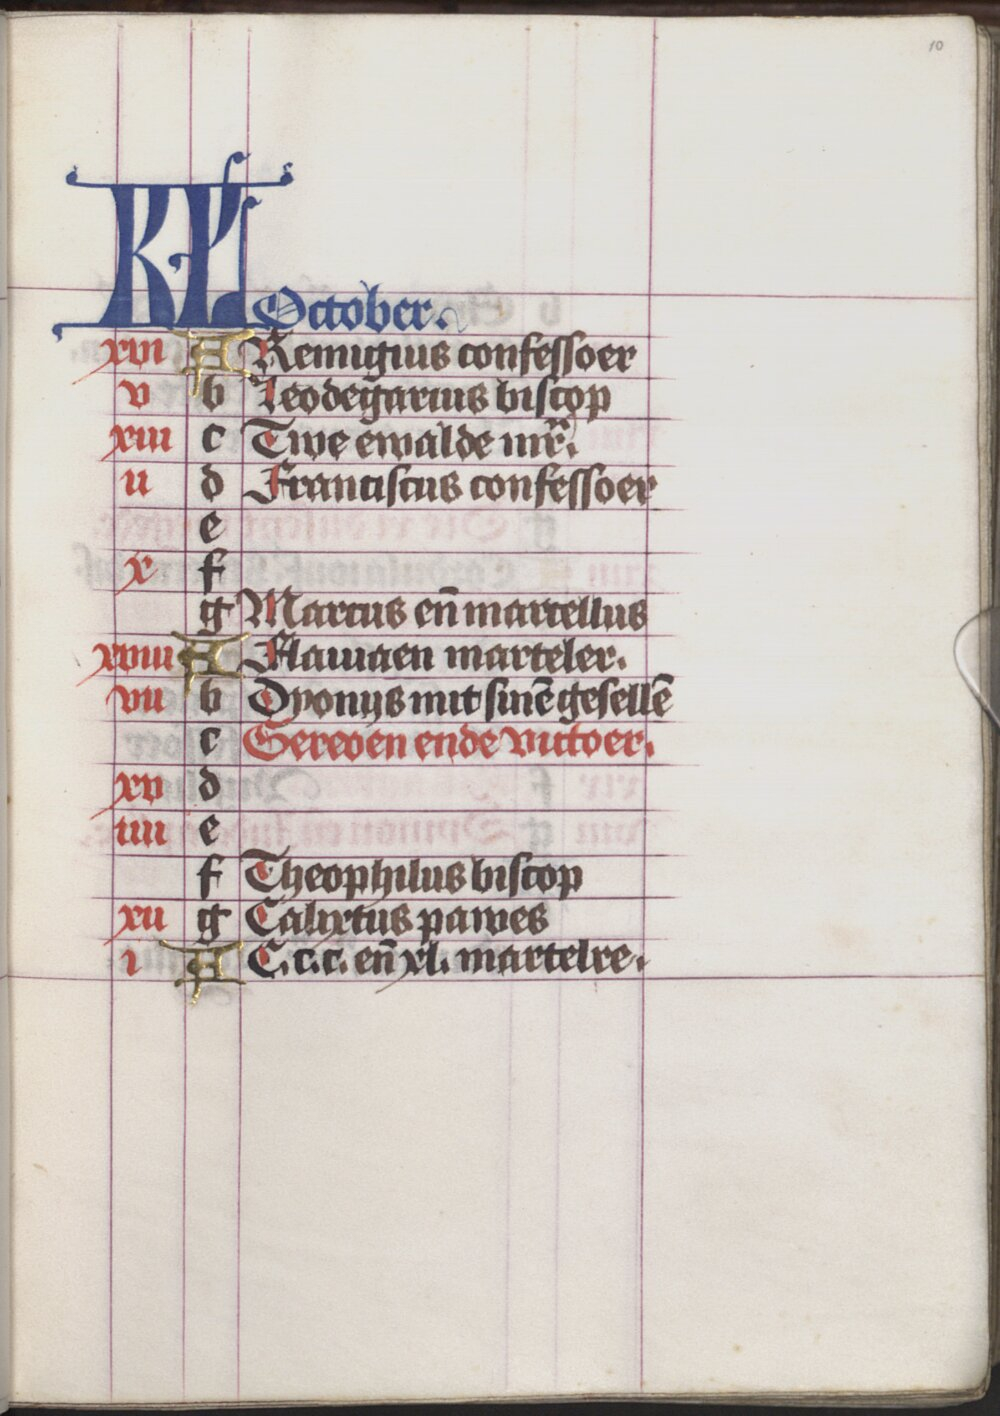 10
KL October.
xvi A Remigius confessoer
v b Leodegarius biscop
xiii c Twe ewalde mr̃.
ii d Franciscus confessoer
e
x f
g Marcus en̄ martellus
xviii A
vii b Dyonijs mit sinē gesellē
c Gereoen ende victoer.
xv d
iiii e
f Theophilus biscop
xii g Calixtus pawes
i A C.c.c. en̄ xl. martelre.